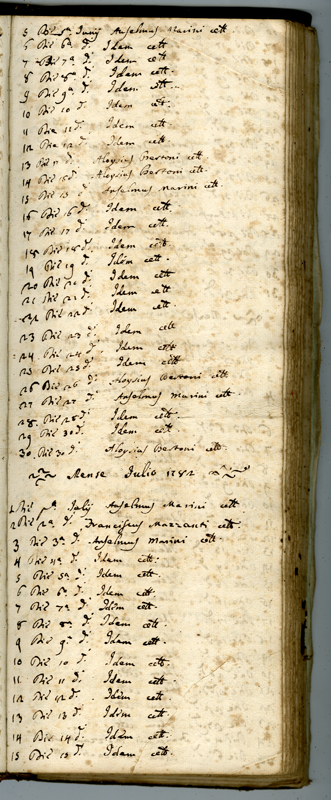 5 Die 5ª Junij Anselmus Marini cett
6 Die 6ª d.º Idem cett
7 Die 7ª d.º Idem cett
8 Die 8ª d.º Idem cett.
9 Die 9ª d.º Idem cett.
10 Die 10 d.º Idem cett.
11 Die 11 d.º Idem cett.
12 Die 12 d.º Idem cett.
13 Die d.º Aloysius Bertoni cett.
14 Die d.º Aloysius Bertoni cett.
15 Die 15 d.º Anselmus Marini cett.
16 Die 16 d.º Idem cett.
17 Die 17 d.º Idem cett.
18 Die 18 d.º Idem cett
19 Die 19 d.º Idem cett.
20 Die 20 d.º Idem cett
21 Die 21 d.º Idem cett
22 Die 22 d.º Idem cett.
23 Die 23 d.º Idem cett
24 Die 24 d.º Idem cett
25 Die 25 d.º Idem cett
26 Die 26 d.º Aloysius Bertoni cett
27 Die 27 d.º Anselmus Marini cett.
28 Die 28 d.º Idem cett.
29 Die d.º Idem cett
30 Die 30 d.º Aloysius Bertoni cett.
Mense Julio 1782
1 Die Julij Anselmus Marini cett
2 Die 2ª d.º Franciscus Mazzanti cett.
3 Die 3ª d.º Anselmus Marini cett.
4 Die 4ª d.º Idem cett.
5 Die 5ª d.º Idem cett.
6 Die 6ª d.º Idem cett.
7 Die 7ª d.º Idem cett.
8 Die 8ª d.º Idem cett.
9 Die 9ª d.º Idem cett
10 Die 10 d.º Idem cett.
11 Die 11 d.º Idem cett.
12 Die 12 d.º Idem cett.
13 Die 13 d.º Idem cett.
14 Die 14 d.º Idem cett.
15 Die 15 d.º Idem cett.